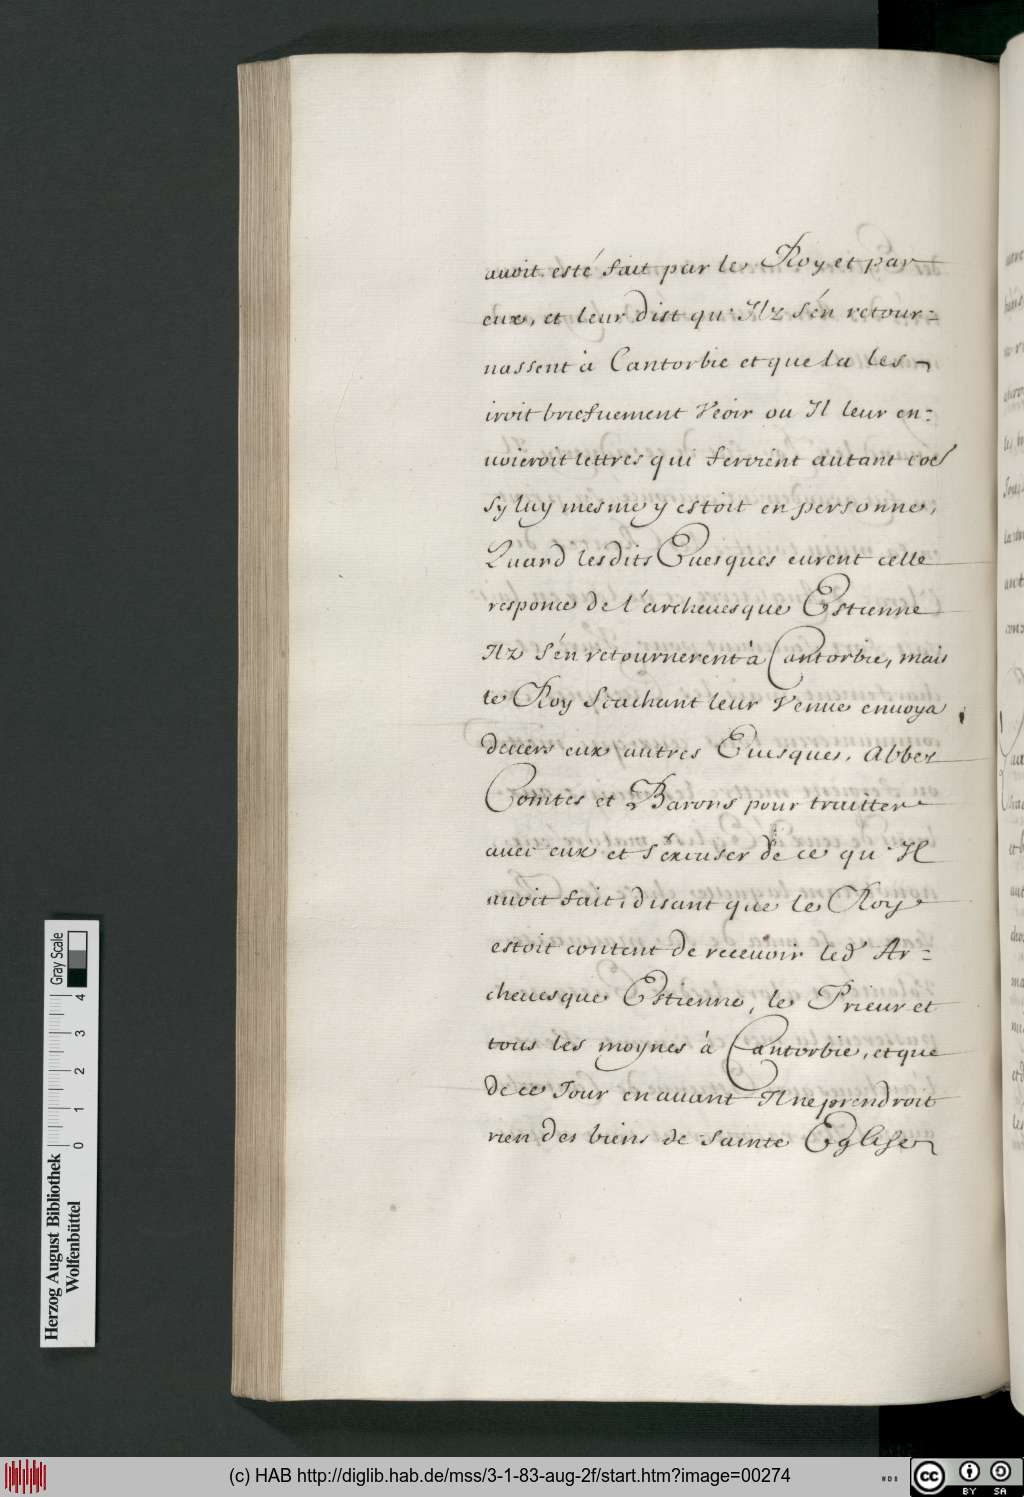 auoit esté fait par le Roy et par
eux, et leur dist qu'Ilz s'én retour=
nassent à Cantorbie et que la les
iroit briefuement Veoir ou Il leur en=
uoieroit lettres qui
sy luy mesme y estoit en personne,
Quand lesdits Euesques eurent celle
responce de l'archeuesque Estienne
Ilz s'én retournerent à Cantorbie, mais
le Roy Scachant leur Venue enuoya
deuers eux autres Euesques, Abbez
Comtes et Barons pour traitter
auec eux et s'éxcuser de ce qu'Il
auoit fait, disant que le Roy
estoit content de receuoir led' Ar=
cheuesque Estienne, le Prieur et
tous les moynes à Cantorbie, et que
de ce Jour en auant Il ne prendroit
rien des biens de Sainte Eglise
Herzog August Bibliothek
Wolfenbüttel
0 1 2 3 4
Gray Scale
(c) HAB http://diglib.hab.de/mss/3-1-83-aug-2f/start.htm?image=00274
WDB
cc
BY SA